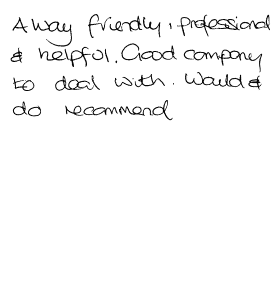 Alway friendly, professional
& helpful. Good company
to deal with. Would &
do recommend